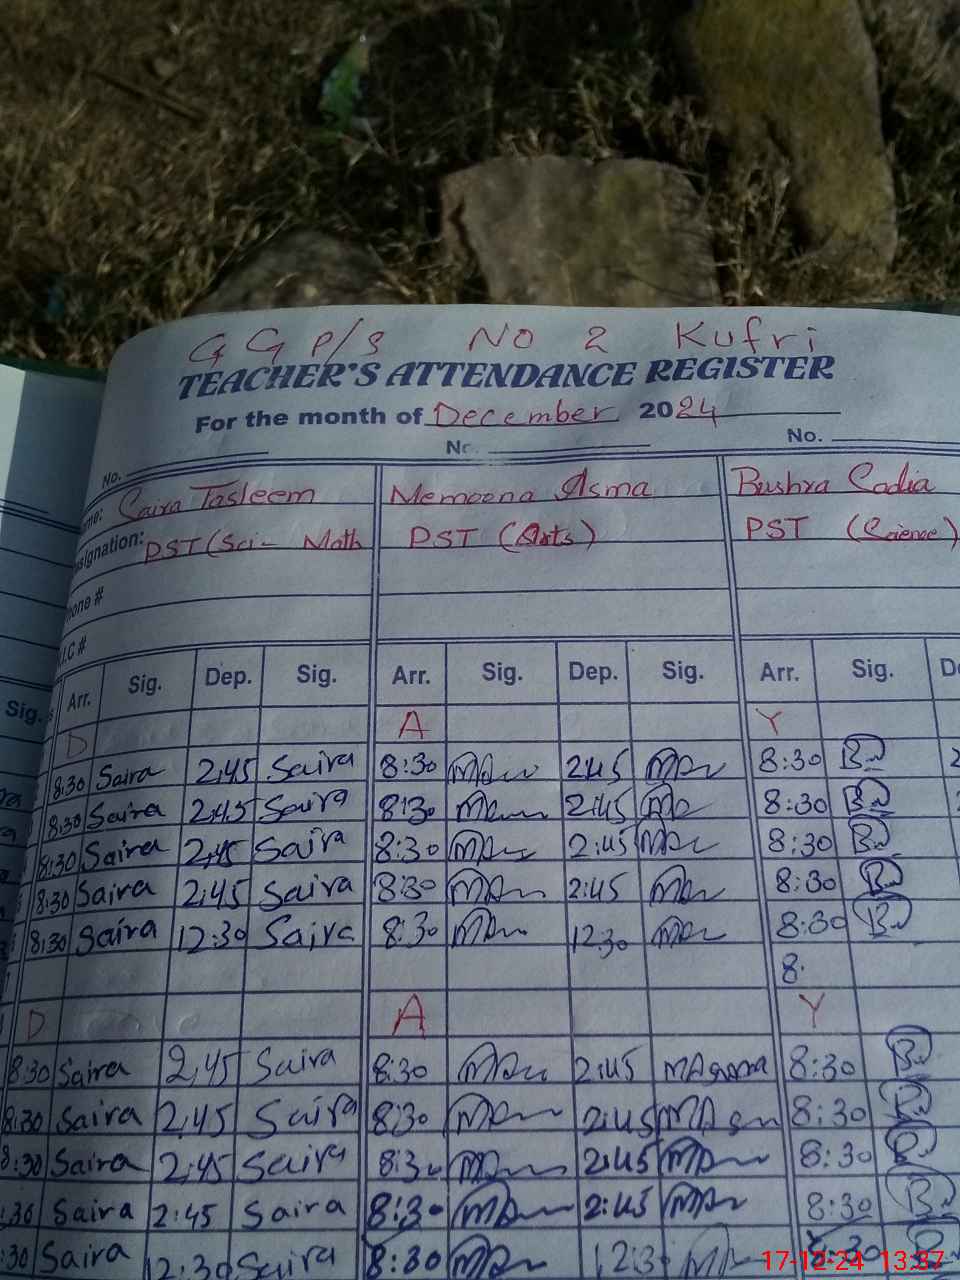 G G P/S No 2 Kufri
TEACHER'S ATTENDANCE REGISTER
For the month of December 2024
No. No.
Saira Tasleem Memoona Asma Bushra Sadia
PST (Sci- Math PST (Arts) PST (Science)
Arr. Sig. Dep. Sig. Arr. Sig. Dep. Sig. Arr. Sig.
D A Y
8:30 Saira 2:45 Saira 8:30 2:45 8:30
8:30 Saira 2:45 Saira 8:30 2:45 8:30
8:30 Saira 2:45 Saira 8:30 2:45 8:30
8:30 Saira 2:45 Saira 8:30 2:45 8:30
8:30 Saira 12:30 Saira 8:30 12:30 8:30
8.
D A Y
8:30 Saira 2:45 Saira 8:30 2:45 8:30
8:30 Saira 2:45 Saira 8:30 2:45 8:30
8:30 Saira 2:45 Saira 8:30 2:45 8:30
:30 Saira 2:45 Saira 8:30 2:45 8:30
:30 Saira 12:30 Saira 8:30 12:30 8:30
17-12-24 13:37